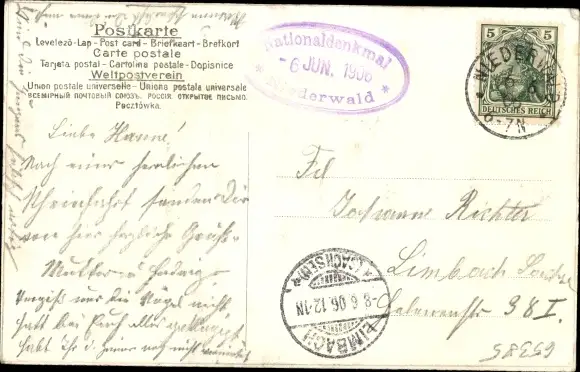 Postkarte
Levelező-Lap - Post card - Briefkaart - Brefkort
Carte postale
Tarjeta postal - Cartolina postale - Dopisnice
Weltpostverein
Union postale universelle - Unione postale universale
ВСЕМІРНЫЙ ПОЧТОВЫЙ СОЮЗЪ. РОССІЯ. ОТКРЫТОЕ ПИСЬМО.
Pocztówka.
Nationaldenkmal
6 JUN. 1906
Niederwald
5 5
DEUTSCHES REICH
NIEDERWALD
6-7N
Liebe Hanne!
Nach einer herrlichen
Rheinfahrt senden Dir
von hier herzliche Grüße
Mutter u. Hedwig
vergeßt uns die Vögel nicht
hat bei Euch alles geklappt
habt Ihr nicht
Frl
Johanne Richter
Limbach Sachsen
38 I.
LIMBACH
(SACHSEN)
8 6 06. 12-1N
65385